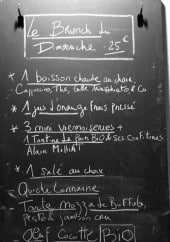 Le Brunch du
Dimanche - 25€
* 1 boisson chaude au choix
Cappucino, Thé, Latte Macchiato & Co
* 1 jus d'orange frais pressé
* 3 mini viennoiseries +
1 Tartine de Pain BIO & ses confitures
Alain Milliat
* 1 salé au choix
- Quiche Lorraine
- Tarte mozza de Buffala,
pesto & jambon cru
- Œuf Cocotte BIO